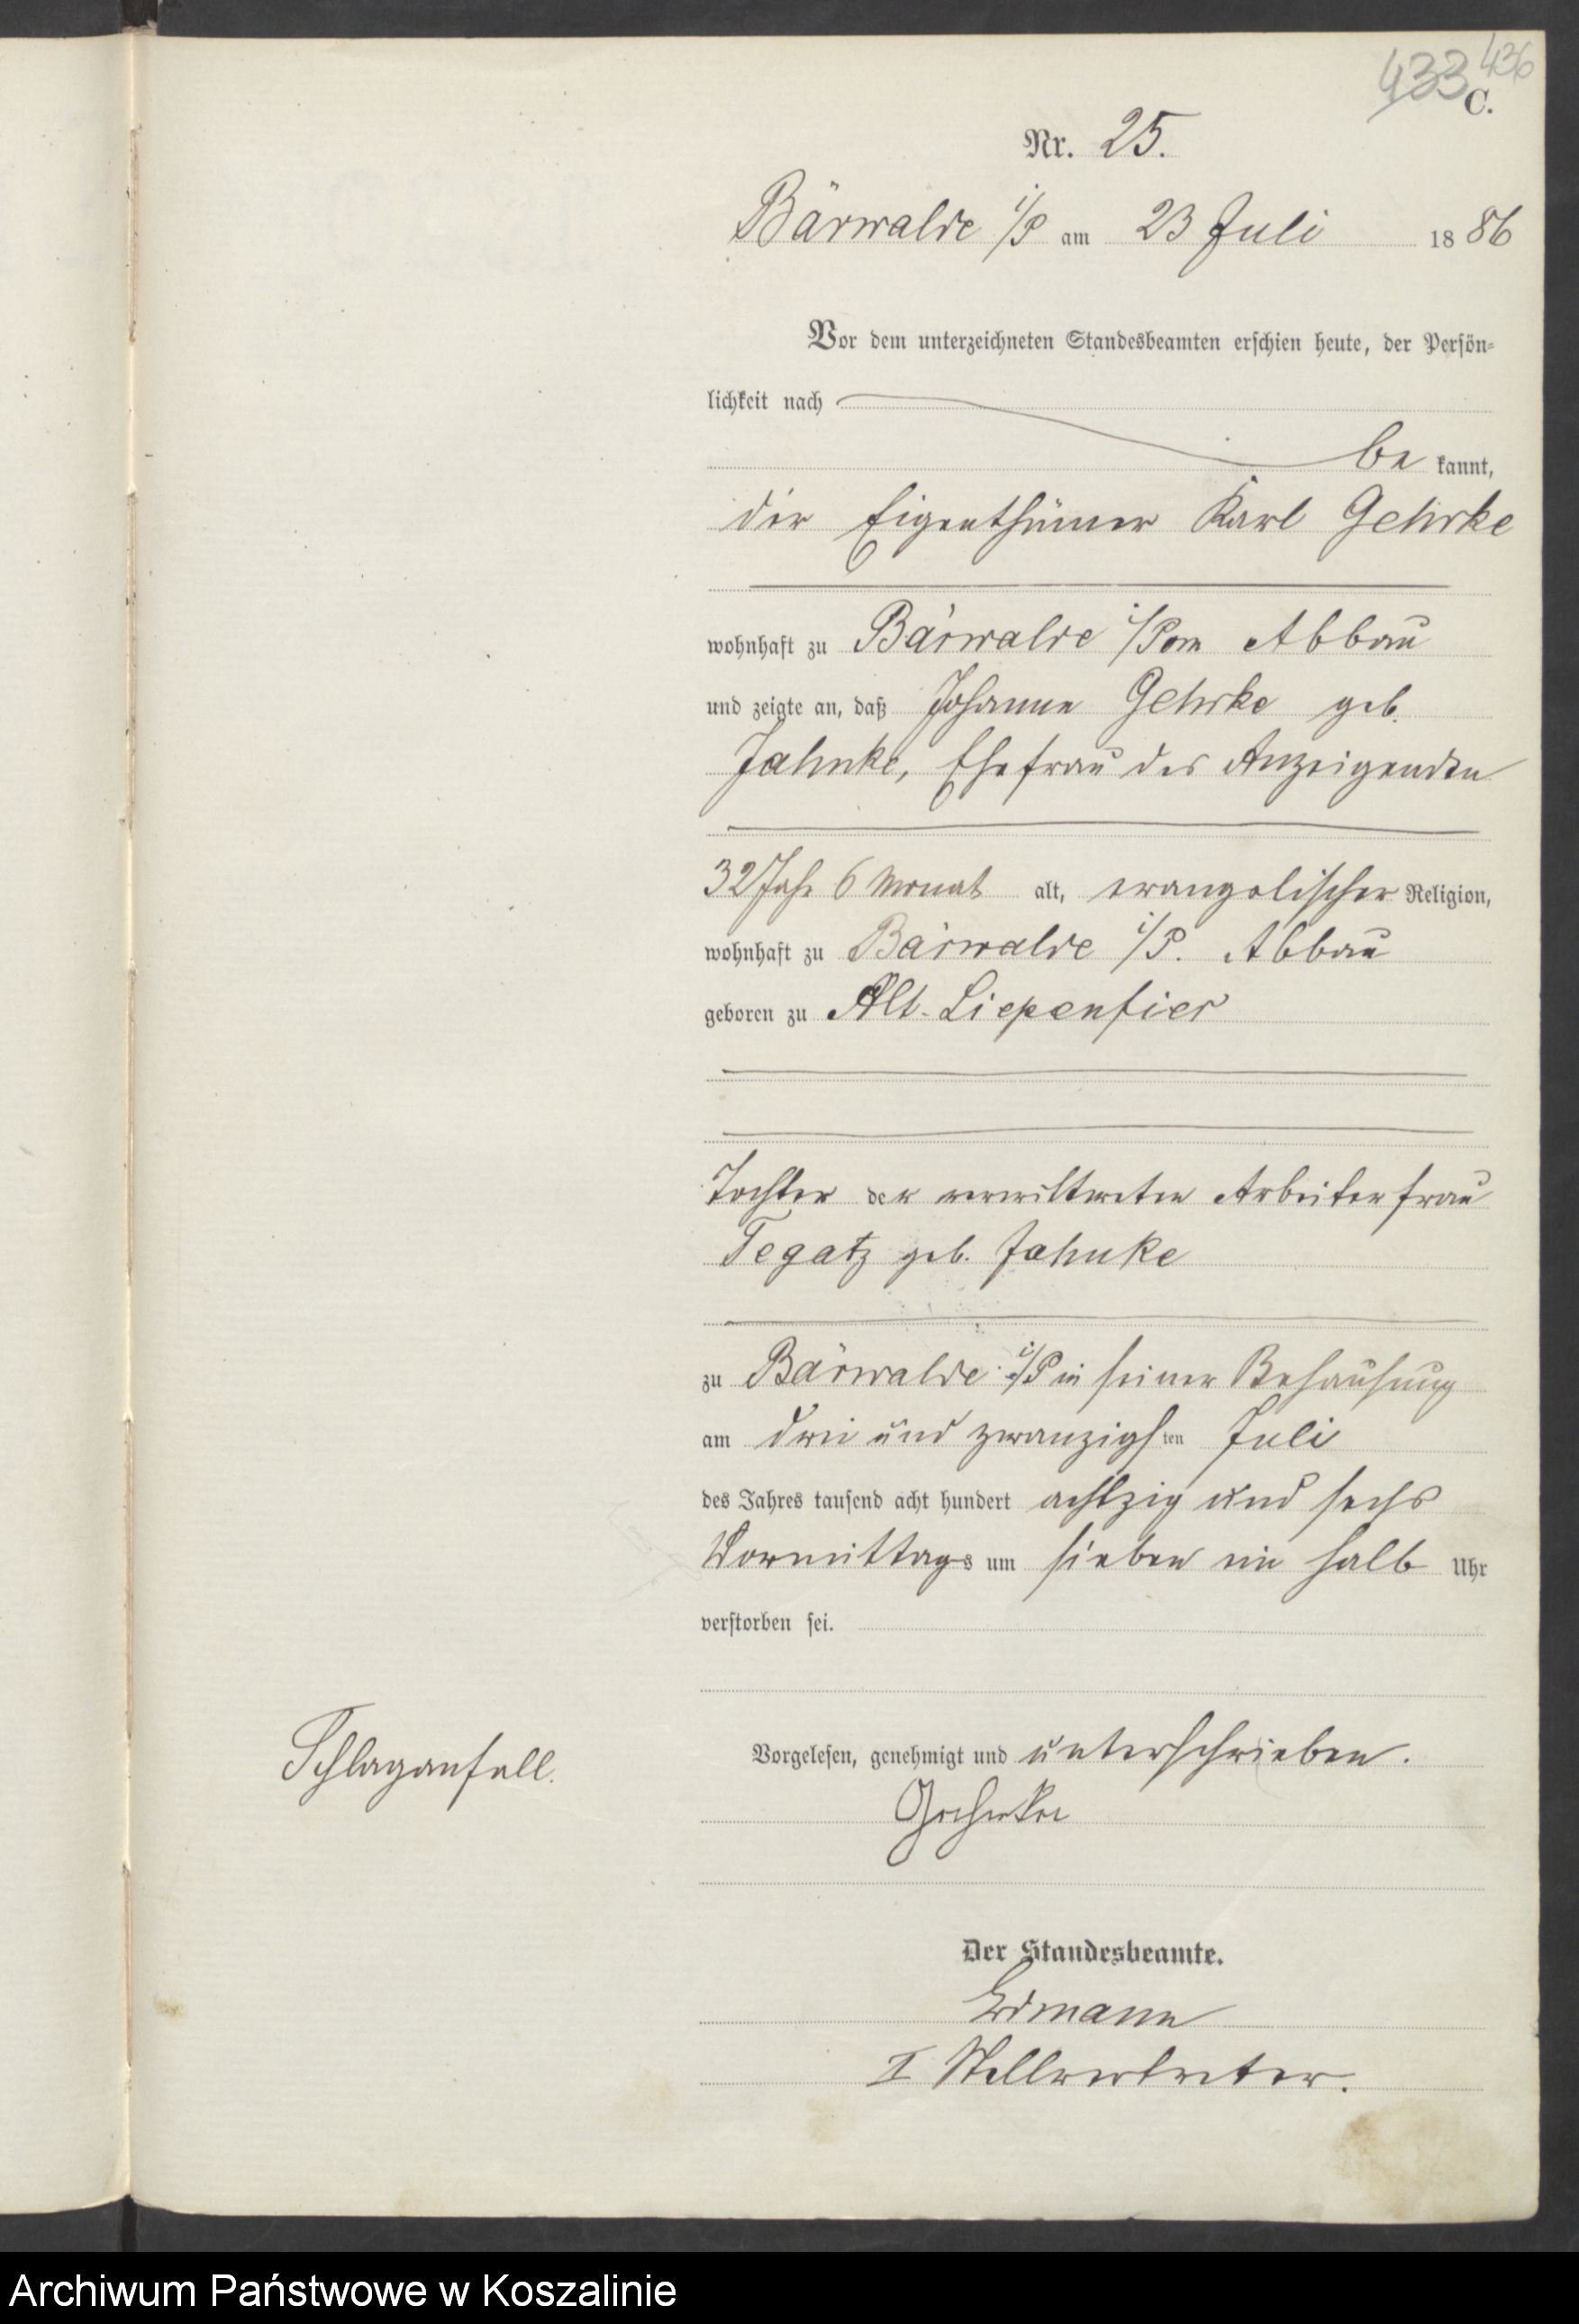 433 436
C.
Nr. 25.
Bärwalde i/P am 23 Juli 1886
Vor dem unterzeichneten Standesbeamten erschien heute, der Persön-
lichkeit nach
be kannt,
der Eigenthümer Karl Gehrke
wohnhaft zu Bärwalde i/Pom Abbau
und zeigte an, daß Johanne Gehrke geb.
Jahnke, Ehefrau des Anzeigenden
32 Jahr 6 Monat alt, evangelischer Religion,
wohnhaft zu Bärwalde i/P. Abbau
geboren zu Alt-Liepenfier
Tochter der verwittweten Arbeiterfrau
Tegatz geb. Jahnke
zu Bärwalde i/P in seiner Behausung
am drei und zwanzigsten Juli
des Jahres tausend acht hundert achtzig und sechs
Vormittags um sieben ein halb Uhr
verstorben sei.
Schlaganfall.
Vorgelesen, genehmigt und unterschrieben.
Gehrke
Der Standesbeamte.
Erdmann
II Stellvertreter.
Archiwum Państwowe w Koszalinie